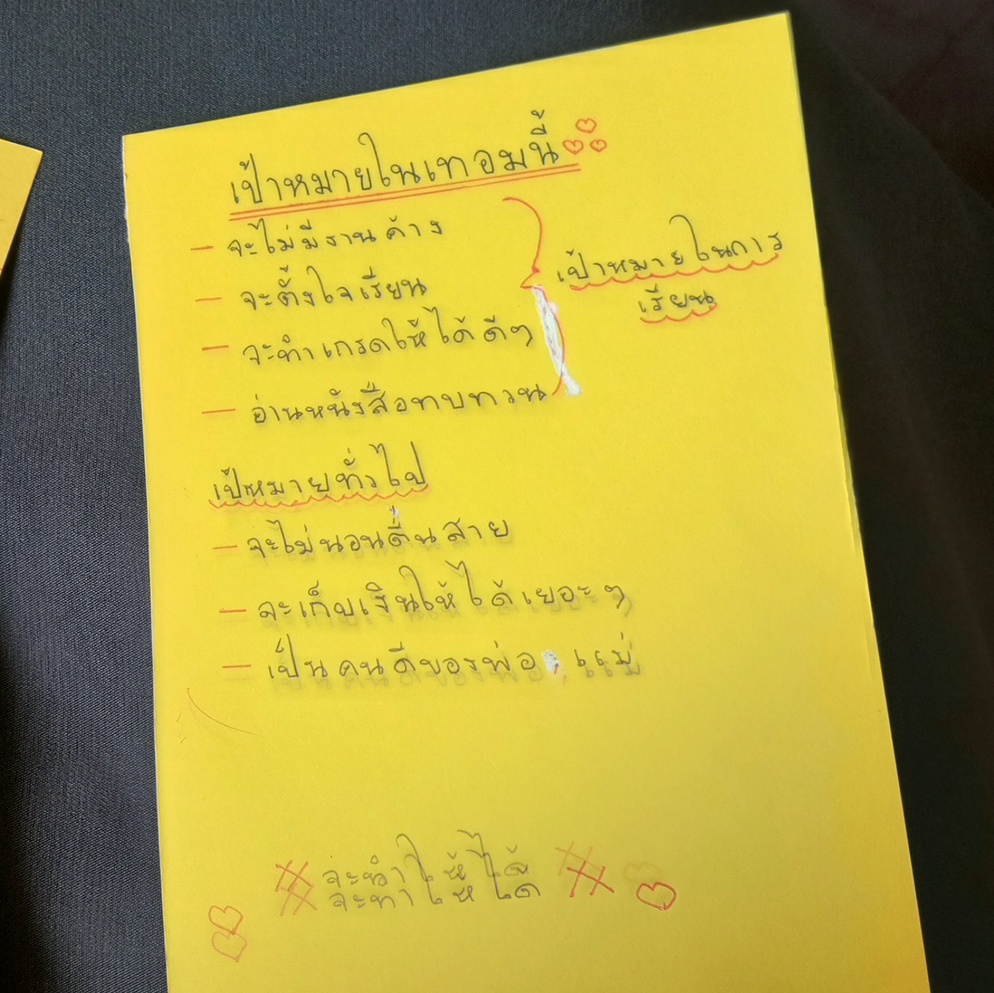 เป้าหมายในเทอมนี้
- จะไม่มีงานค้าง
- จะตั้งใจเรียน
- จะทำเกรดให้ได้ดีๆ
- อ่านหนังสือทบทวน
เป้าหมายในการ
เรียน
เป้าหมายทั่วไป
- จะไม่นอนตื่นสาย
- จะเก็บเงินให้ได้เยอะๆ
- เป็นคนดีของพ่อ, แม่
# จะทำให้ได้ #